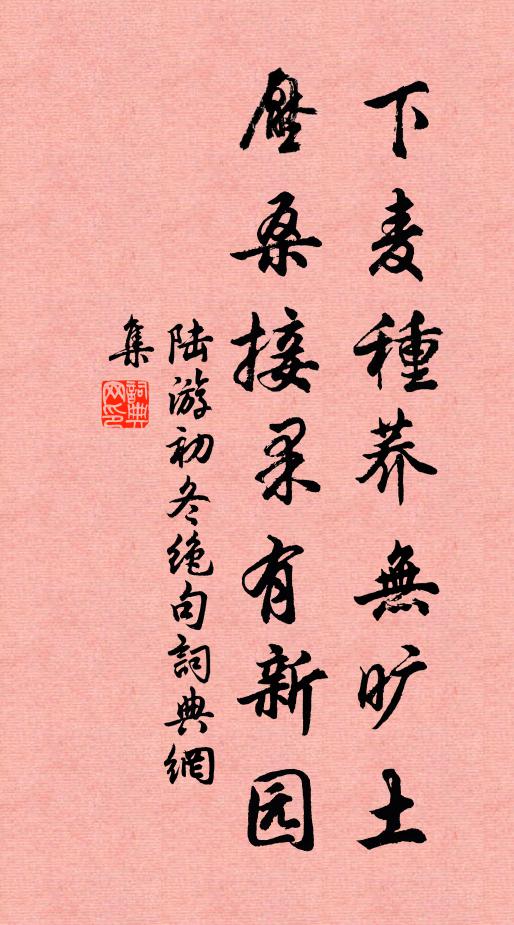 下麦種荞無旷土
壓桑接果有新园
陆游初冬绝句詞典網
集
詞典
网印